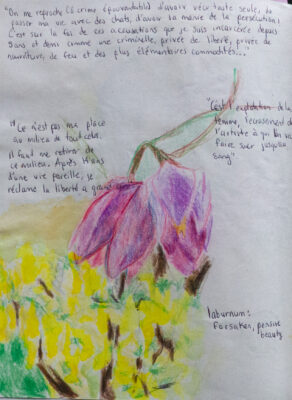 "On me reproche (ô crime épouvantable) d'avoir vécu toute seule, de
passer ma vie avec des chats, d'avoir la manie de la persécution!
C'est sur la foi de ces accusations que je suis incarcérée depuis
5 ans et demi comme une criminelle, privée de liberté, privée de
nourriture, de feu et des plus élémentaires commodités..."
"Ce n'est pas ma place
au milieu de tout cela.
Il faut me retirer de
ce milieu. Après 14 ans
d'une vie pareille, je
réclame la liberté à grands
"C'est l'exploitation de la
femme, l'écrasement de
l'artiste à qui l'on veut
faire suer jusqu'au
sang"
laburnum:
forsaken, pensive
beauty